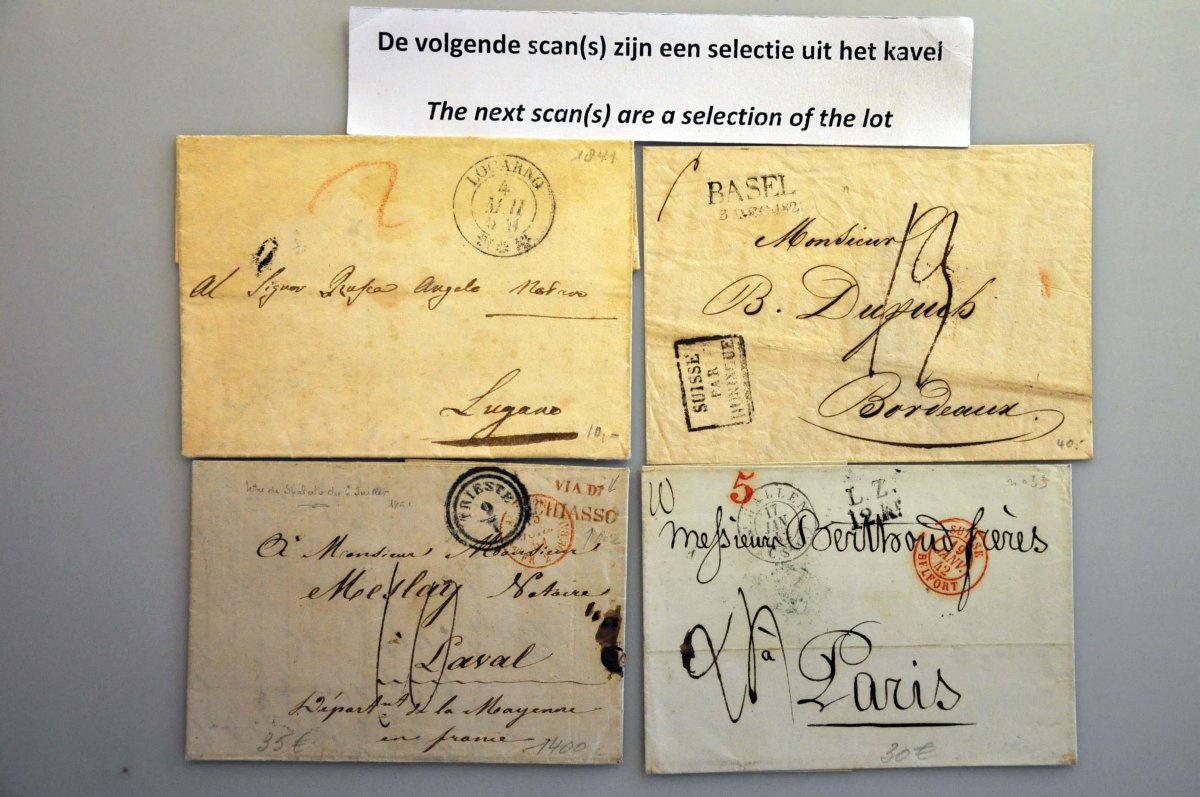 De volgende scan(s) zijn een selectie uit het kavel
The next scan(s) are a selection of the lot
1841
LOCARNO
4
Al Signor Rusca Angelo
Lugano
10,-
BASEL
Monsieur
B. Dupuch
Bordeaux.
SUISSE
PAR
HUNINGUE
40.-
TRIESTE
9
VIA DI
CHIASSO
A Monsieur Monsieur
Meslay Notaire
à
Laval
Départ.nt de la Mayenne
en france
35€
1400
5
GALLEN
17
JAN
L.Z.
12 Kr
n° 39
Messieurs Berthoud frères
SUISSE
19
JANV.
42
BELFORT
à
Paris
30€